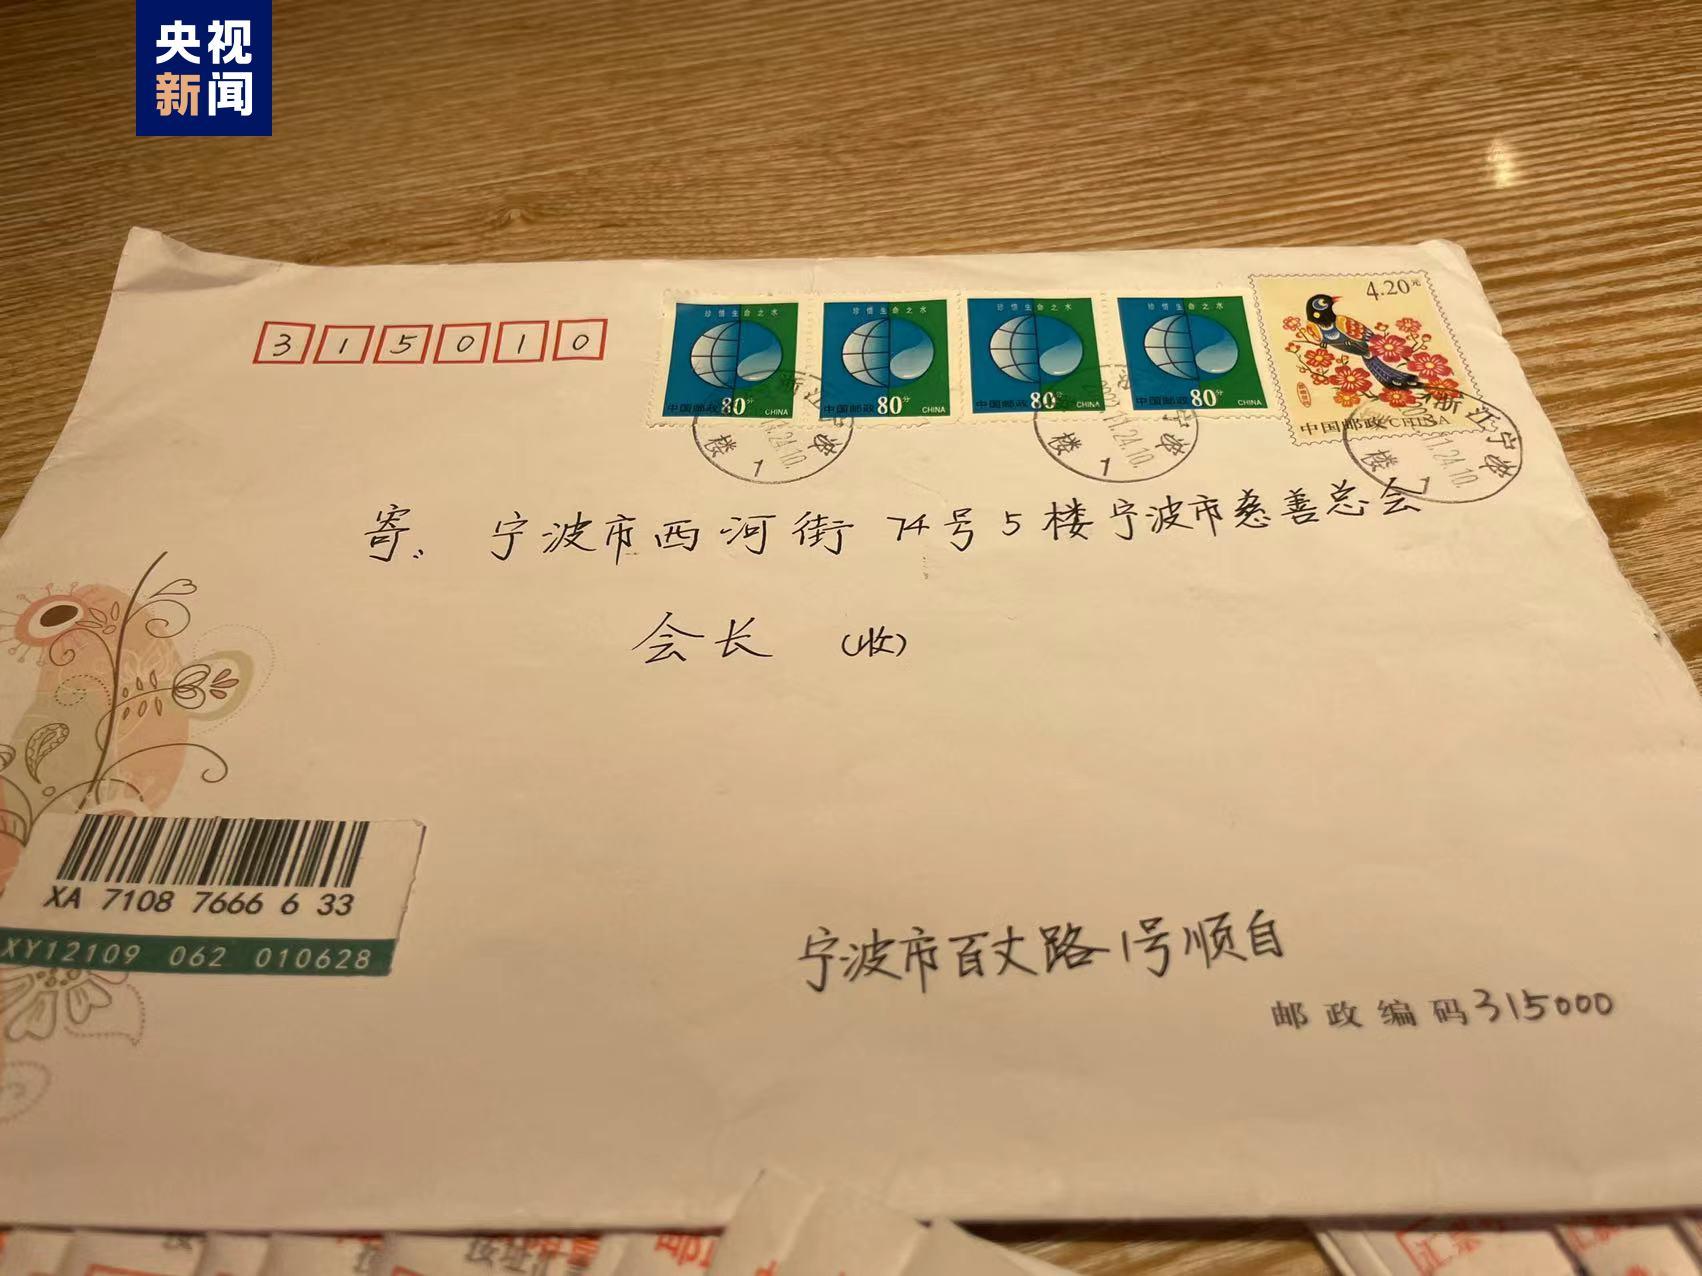 央视
新闻
315010
珍惜生命之水
中国邮政 80分 CHINA
珍惜生命之水
中国邮政 80分 CHINA
珍惜生命之水
中国邮政 80分 CHINA
珍惜生命之水
中国邮政 80分 CHINA
4.20元
中国邮政 CHINA
浙江宁波
11.24.10
楼 1
浙江宁波
11.24.10
楼 1
浙江宁波
11.24.10
楼 1
寄、宁波市西河街74号5楼宁波市慈善总会
会长 (收)
XA 7108 7666 6 33
XY12109 062 010628
宁波市百丈路1号顺自
邮政编码315000